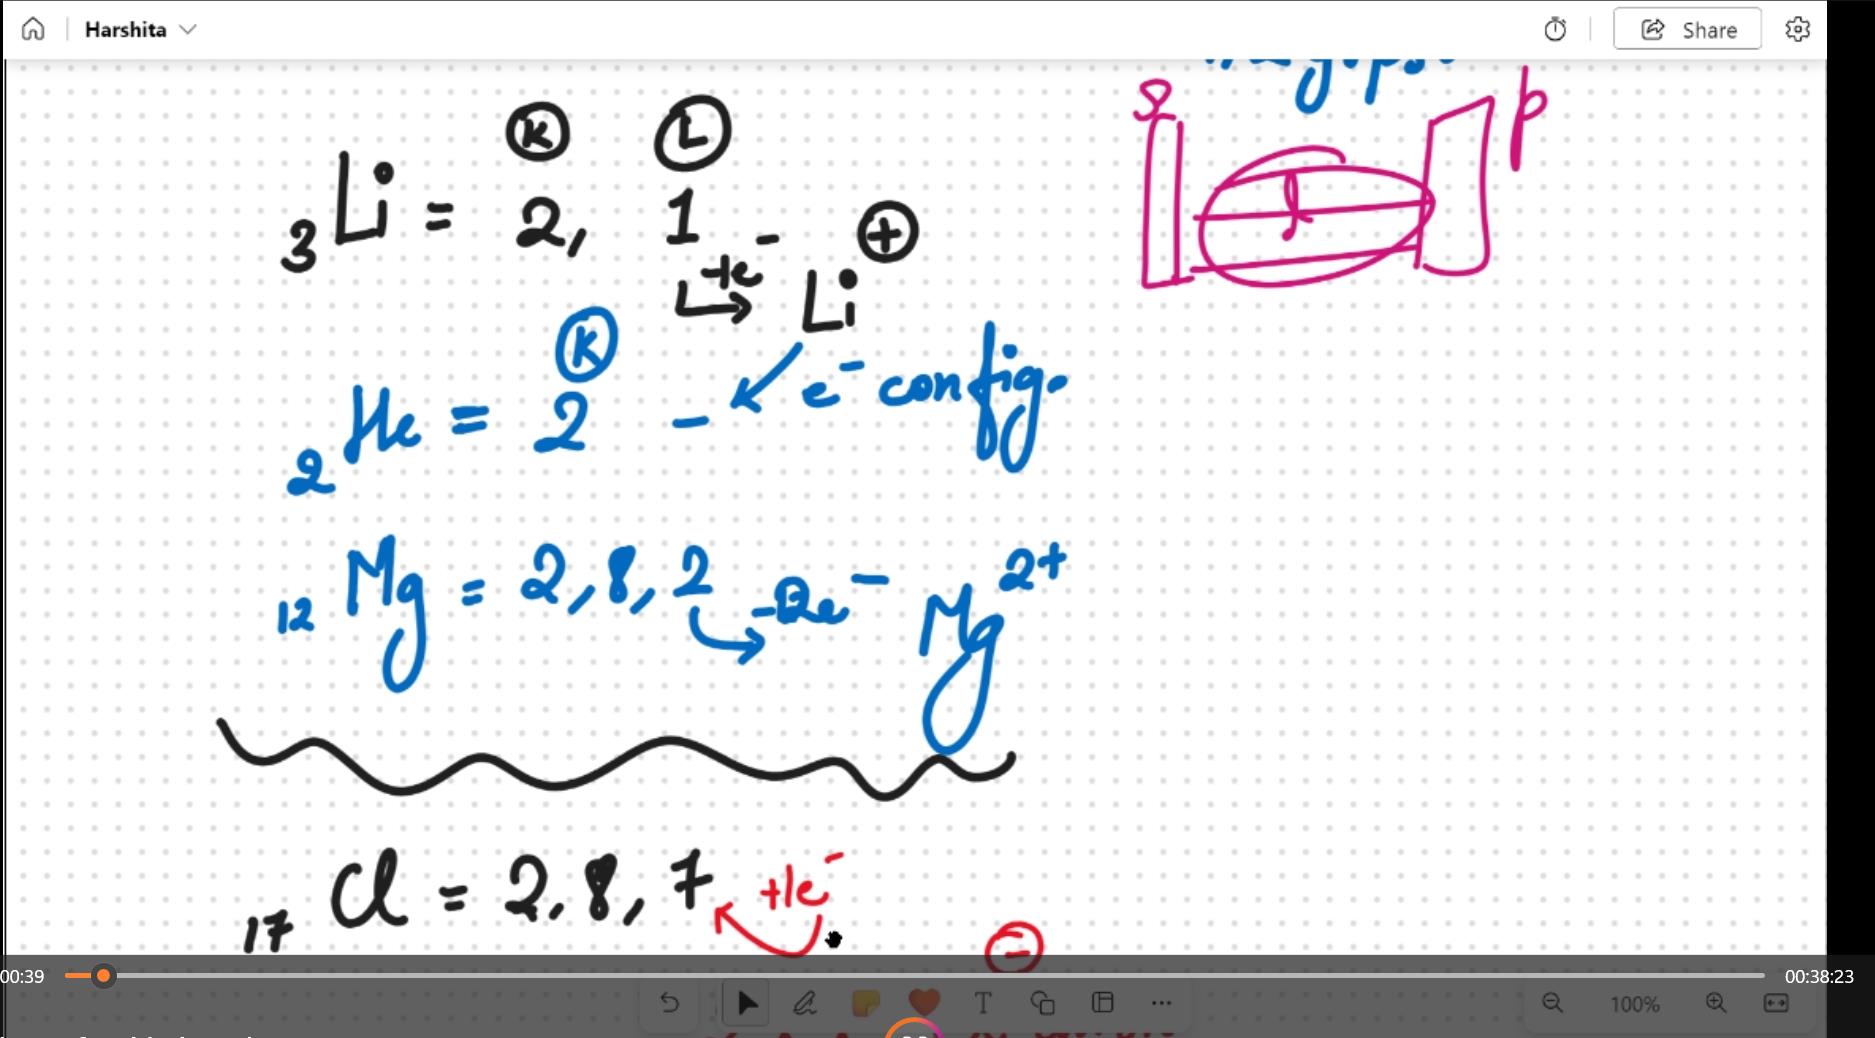 Harshita
Share
K L
₃Li = 2, 1
+e⁻ Li⁺
K
₂He = 2 - e⁻ config.
₁₂Mg = 2, 8, 2 -2e⁻ Mg²⁺
₁₇Cl = 2, 8, 7 +1e⁻
p
00:39
00:38:23
100%